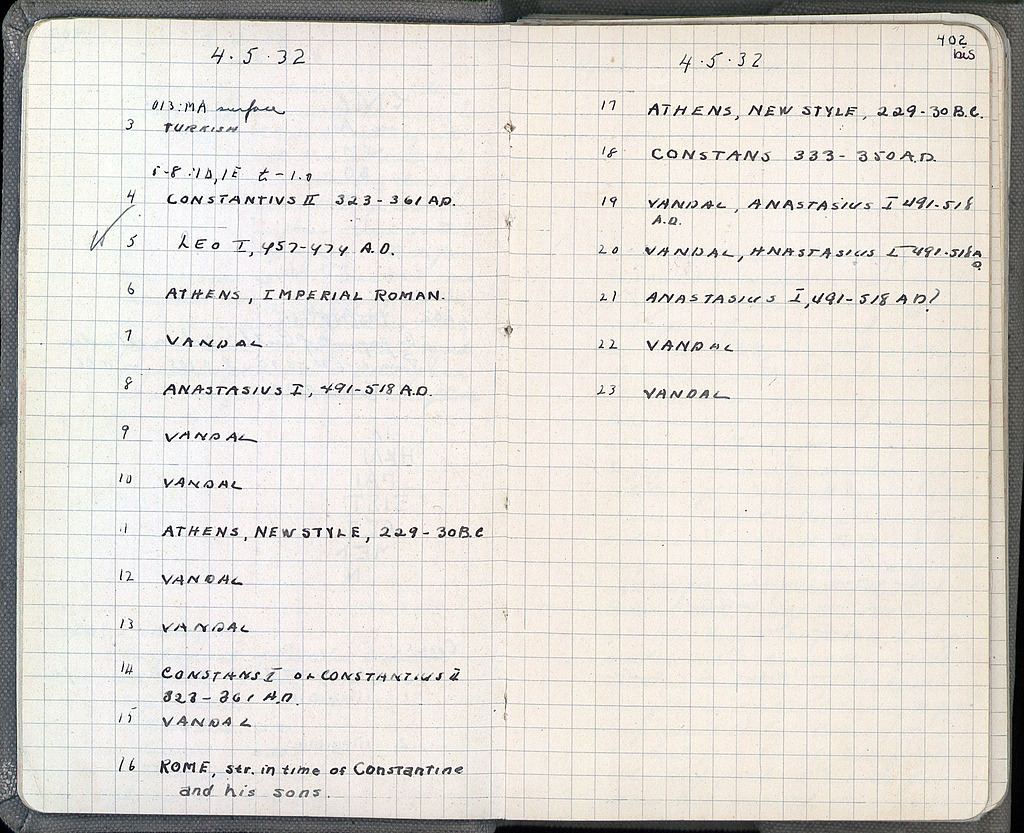 4.5.32
013:MA surface
3 TURKISH
5-8:1D,1E t-1.0
4 CONSTANTIVS II 323-361 AD.
5 LEO I, 457-474 A.D.
6 ATHENS, IMPERIAL ROMAN.
7 VANDAL
8 ANASTASIVS I, 491-518 A.D.
9 VANDAL
10 VANDAL
11 ATHENS, NEW STYLE, 229-30 B.C
12 VANDAL
13 VANDAL
14 CONSTANS I or CONSTANTIUS II
323-361 A.D.
15 VANDAL
16 ROME, str. in time of Constantine
and his sons.
402
bis
4.5.32
17 ATHENS, NEW STYLE, 229-30 B.C.
18 CONSTANS 333-350 A.D.
19 VANDAL, ANASTASIUS I 491-518
A.D.
20 VANDAL, ANASTASIUS I 491-518 A
D.
21 ANASTASIUS I, 491-518 AD?
22 VANDAL
23 VANDAL